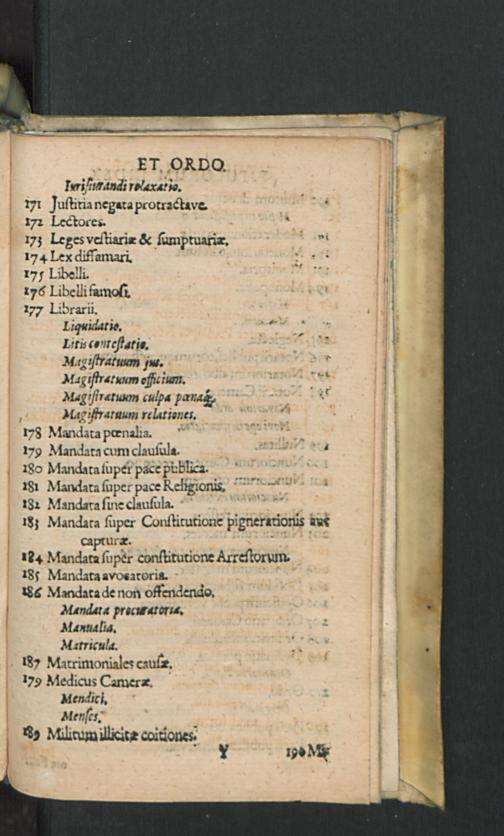 ET ORDO.
Iurisiurandi relaxatio.
171 Justitia negata protractave.
172 Lectores.
173 Leges vestiariæ & sumptuariæ.
174 Lex diffamari.
175 Libelli.
176 Libelli famosi.
177 Librarii.
Liquidatio.
Litis contestatio.
Magistratuum jus.
Magistratuum officium.
Magistratuum culpa pœnaq́;.
Magistratuum relationes.
178 Mandata pœnalia.
179 Mandata cum clausula.
180 Mandata super pace publica.
181 Mandata super pace Religionis.
182 Mandata sine clausula.
183 Mandata super Constitutione pignerationis aut
capturæ.
184 Mandata super constitutione Arrestorum.
185 Mandata avocatoria.
186 Mandata de non offendendo.
Mandata procuratoria.
Manualia.
Matricula.
187 Matrimoniales causæ.
179 Medicus Cameræ.
Mendici.
Menses.
189 Militum illicitæ coitiones.
Y 190 Mi-